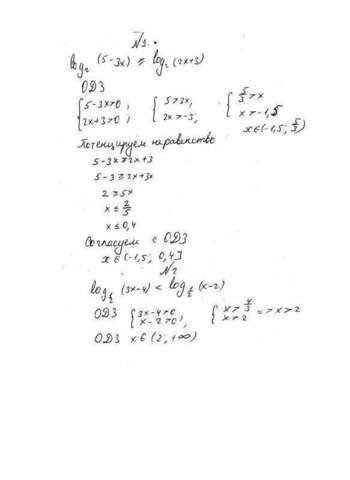 №1.
log₂ (5-3x) ≥ log₂ (2x+3)
ОДЗ
{5-3x>0, {5>3x, {5/3>x
{2x+3>0; {2x>-3; {x>-1,5
x∈(-1,5; 5/3)
Потенцируем неравенство
5-3x≥2x+3
5-3≥2x+3x
2≥5x
x≤2/5
x≤0,4
Согласуем с ОДЗ
x∈(-1,5; 0,4]
№2
(3x-4) < (x-2)
ОДЗ {3x-4>0 {x>4/3 => x>2
{x-2>0; {x>2
ОДЗ x∈(2; +∞)